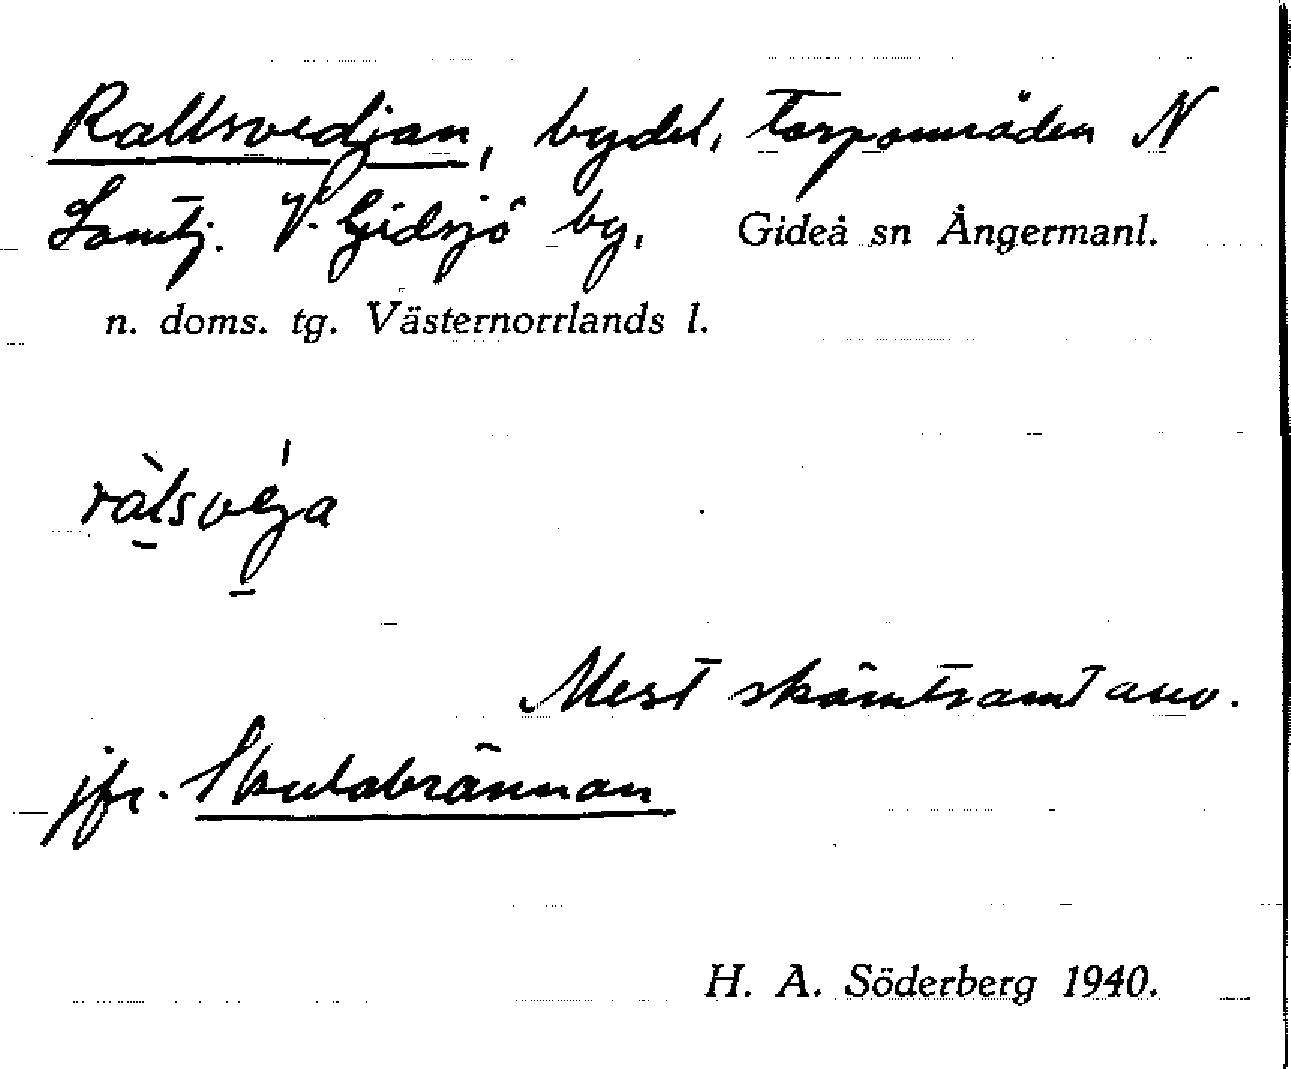 Rallsvedjan, bydel, torpområden N
Lomtj. V. Gidsjö by, Gideå sn Ångermanl.
n. doms. tg. Västernorrlands l.
ràlsvéja
Mest skämtsamt anv.
jfr. Skulabrännan
H. A. Söderberg 1940.